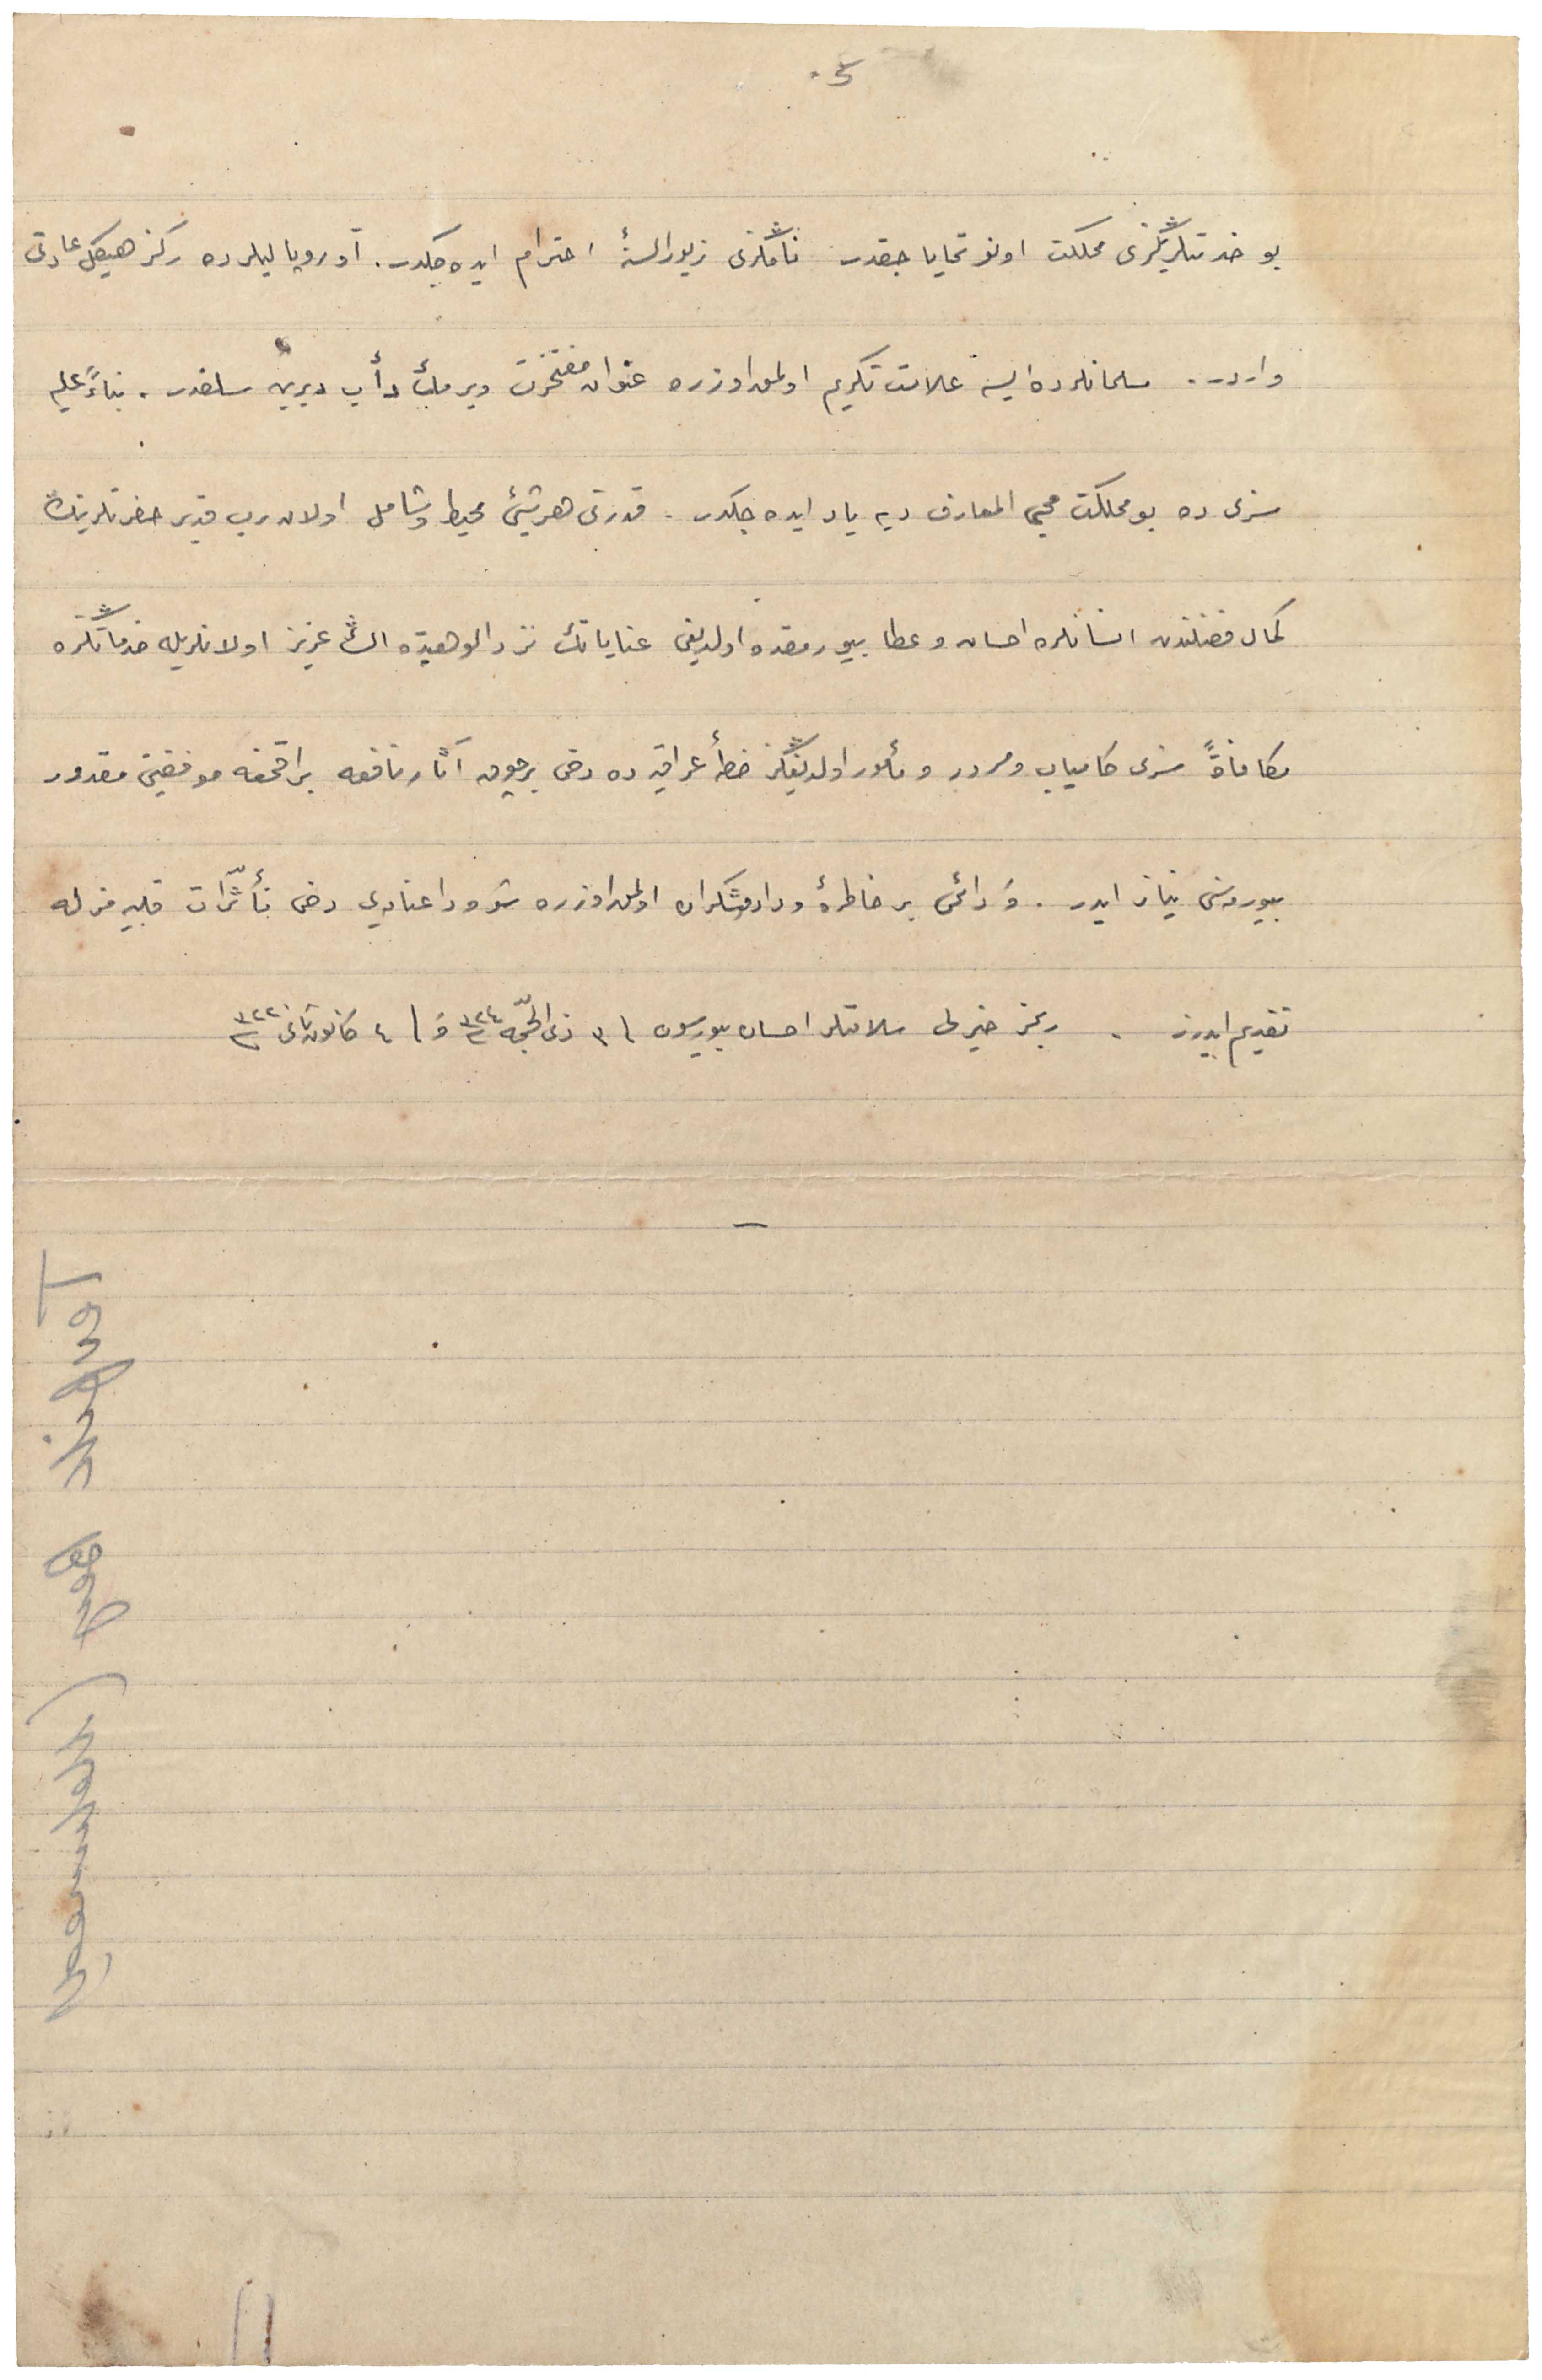 بو خدمتلریڭزی مملكت اونوتمایاجقدر نامڭزی زیور السنهٔ احترام ایده‌جكدر. آوروپالیلرده ركز هیكل عادتی
واردر. مسلمانلرده ایسه علامت تكریم اولمق اوزره عنوان مفتخرت ویرمك دأب دیرین سلفدر. بناءً علیه
سزی ده بو مملكت محیی المعارف دیه یاد ایده‌جكدر. قدرتی هر شیئی محیط و شامل اولان رب قدیر حضرتلرینڭ
كمال فضلندن انسانلره احسان و عطا بیورمقده اولدیغی عنایاتڭ نزد الوهیتده اڭ عزیز اولانلریله خدماتڭزه
مكافاةً سزی كامیاب و مسرور و مأمور اولدیغڭز خطهٔ عراقیه‌ده دخی برچوق آثار نافعه براقمغه موفقیتی مقدور
بیورمسنی نیاز ایدر. و دائمی بر خاطرهٔ وداد و شكران اولمق اوزره شو وداعنامه‌یی دخی تأثّرات قلبیه‌مزله
تقدیم ایدرز. ربمز خیرلی سلامتلر احسان بیورسون ٣ ذی الحجّه ٣٢٤ و ٤ كانون ثانی ٣٢٢